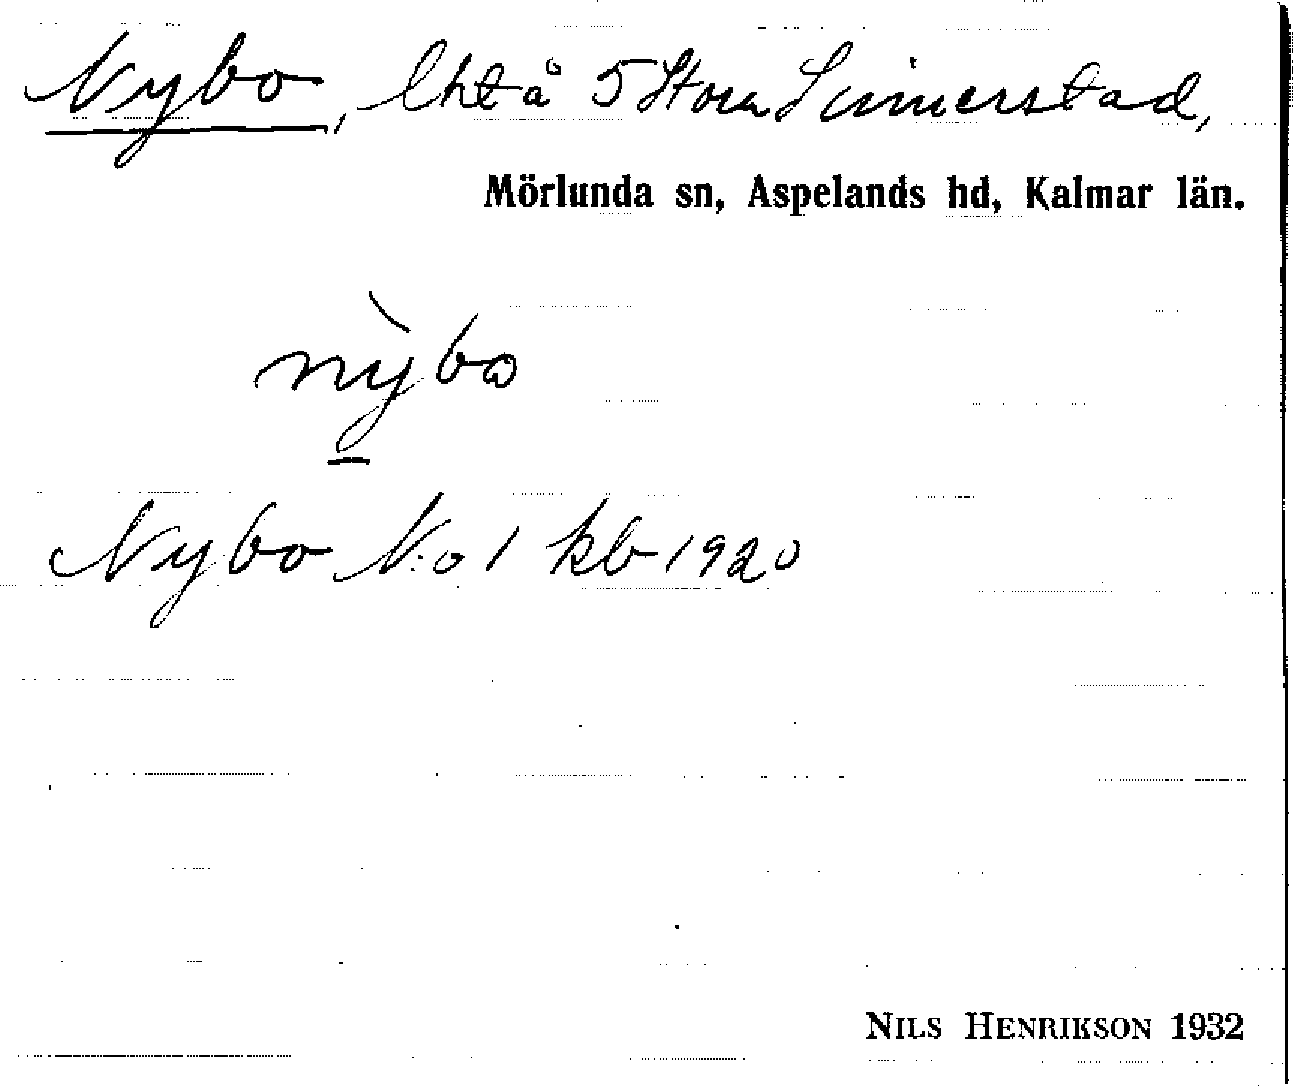 Nybo, lht å 5 Stora Sinnerstad,
Mörlunda sn, Aspelands hd, Kalmar län.
nỳbω
Nybo N:o 1 kb 1920
NILS HENRIKSON 1932